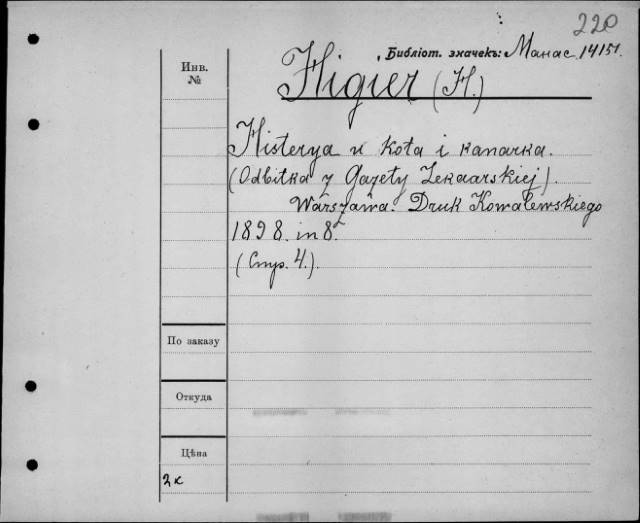 220
Библіот. значекъ: Манас. 14151.
Инв.
№
Higier (H.)
Histerya u kota i kanarka.
(Odbitka z Gazety Lekaarskiej).
Warszawa. Druk Kowalewskiego
1898. in 8.
(Стр. 4.).
По заказу
Откуда
Цѣна
2 к